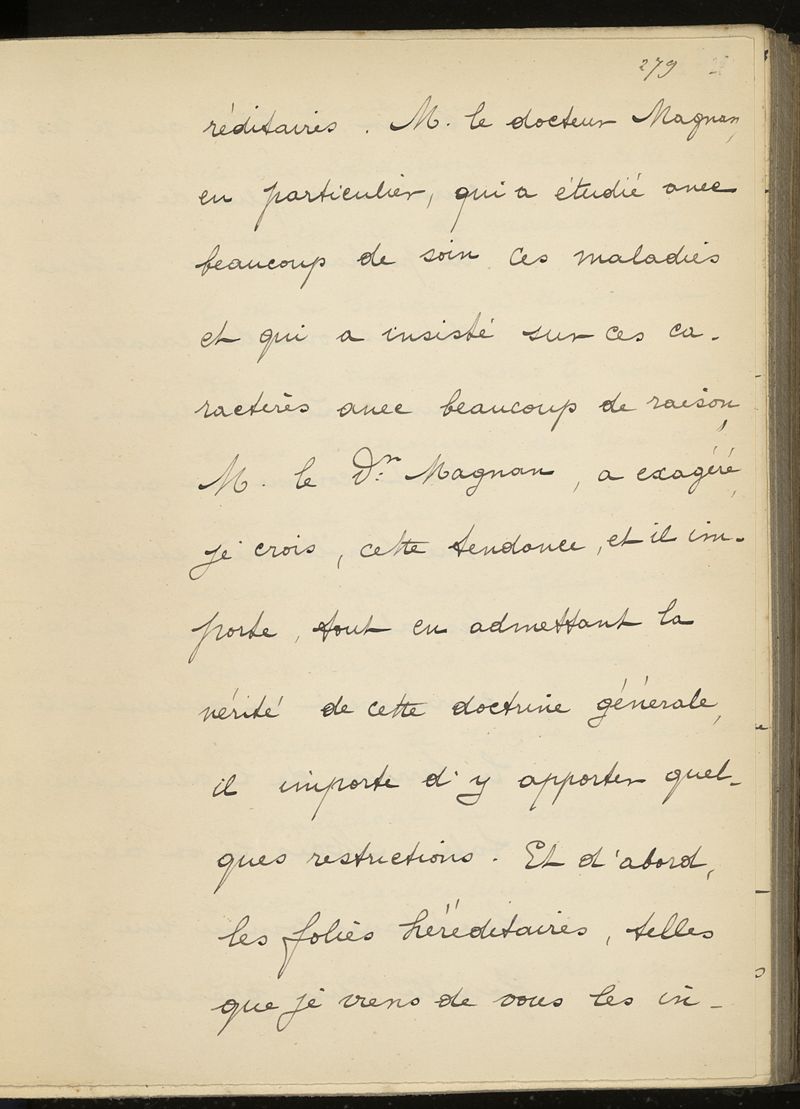 279
réditaires. M. le docteur Magnan,
en particulier, qui a étudié avec
beaucoup de soin ces maladies
et qui a insisté sur ces ca-
ractères avec beaucoup de raison,
M. le Dr. Magnan, a exagéré,
je crois, cette tendance, et il im-
porte, tout en admettant la
vérité de cette doctrine générale,
il importe d'y apporter quel-
ques restrictions. Et d'abord,
les folies héréditaires, telles
que je viens de vous les in-